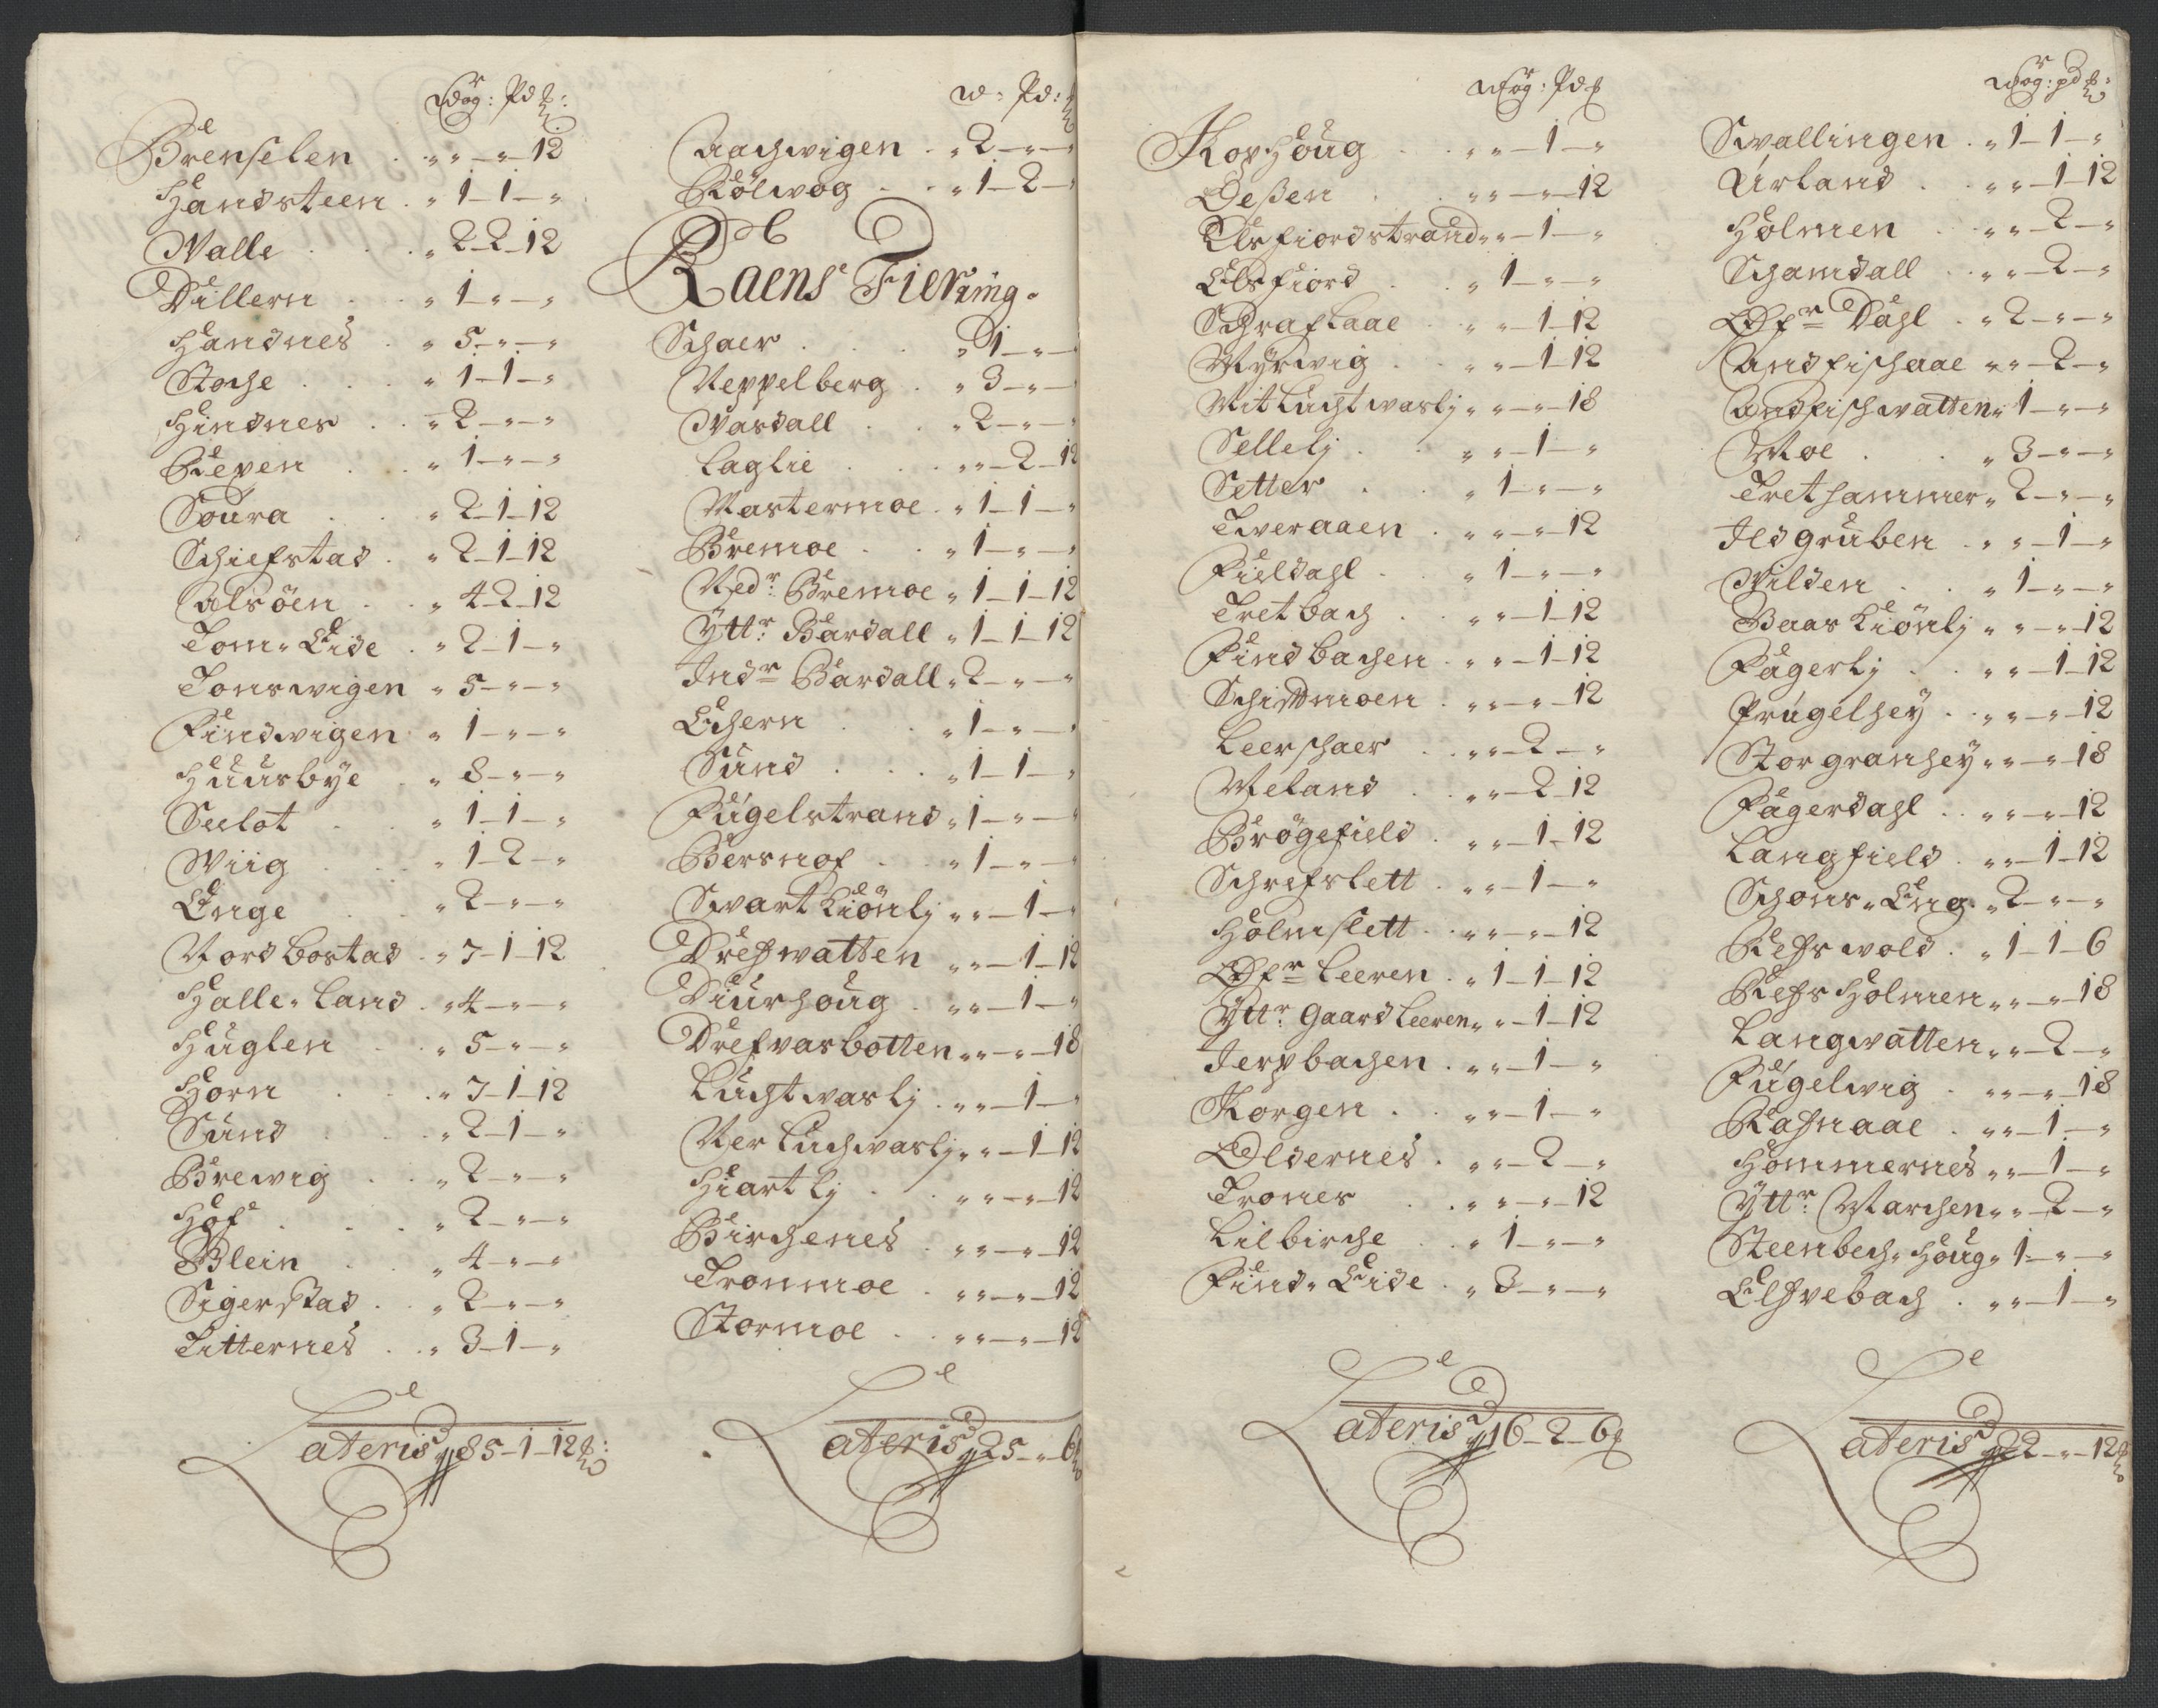 Wog: Pd ℔:
Brenselen . „ „ – „ – 12
Handsteen . „ 1 – 1 – „
Walle . . „ 2 – 2 – 12
Dillern . . „ 1 – „ – „
Handnes . „ 5 – „ – „
Stoche . . „ 1 – 1 – „
Hindnes . . „ 2 – „ – „
Reepen . . „ 1 – „ – „
Soura . . „ 2 – 1 – 12
Schiefstad . „ 2 – 1 – 12
Alsöen . . „ 4 – 2 – 12
Tom„ Eide . „ 2 – 1 – „
Tonswigen „ 5 – „ – „
Findwigen „ 1 – „ – „
Huusbye . „ 8 – „ – „
Seelot . . „ 1 – 1 – „
Wiig . . „ 1 – 2 – „
Enge . . „ 2 – „ – „
Nord bostad . „ 7 – 1 – 12
Halle„ land . „ 4 – „ – „
Huglen . . „ 5 – „ – „
Horn . . „ 7 – 1 – 12
Sund . . „ 2 – 1 – „
Brewig . . „ 2 – „ – „
Hof . . „ 2 – „ – „
Blein . . „ 4 – „ – „
Sigerstad . . „ 2 – „ – „
Titternes . . „ 3 – 1 – „
Lateris 85 – 1 – 12 ℔:
W: Pd: ℔
Aachwigen . „ 2 – „ –
Rölwog . . „ 1 – 2 –
Raens Fiering.
Schaer . . „ 1 – „ –
Neppelberg . „ 3 – „ –
Wasdall . . „ 2 – „ –
Laglie . . „ „ – 2 – 12
Mastermoe . „ 1 – 1 – „
Bremoe . . „ 1 – „ – „
Nedr: Bremoe „ 1 – 1 – 12
Yttr: Bardall „ 1 – 1 – 12
Indr Bardall „ 2 – „ – „
Echern . . „ 1 – „ –
Sund . . „ 1 – 1 – „
Fugelstrand „ 1 – „ – „
Bersnof . . „ 1 – „ –
Swart kiönlj „ „ – 1 – „
Drefwatten „ „ – 1 – 12
Diurhoug . „ „ – 1 – „
Drefvasbotten „ „ – „ – 18
Luchtwaslj . „ „ – 1 – „
Ner Luchwaslj „ „ – 1 – 12
Hiartlj . . „ „ – „ – 12
Birchenes . „ „ – „ – 12
Tronmoe . „ „ – „ – 12
Stormoe . . „ „ – „ – 12
Lateris 25 – „ – 6 ℔
Wog: Pd ℔
Kophoug . . „ „ – 1 – „
Oeßen . „ „ – „ – 12
Elsfiordstrand „ „ – 1 – „
Elsfiord . „ 1 – „ – „
Schraflaae . „ „ – 1 – 12
Myrwig . „ „ – 1 – 12
Mit Luchtwaslj „ „ – „ – 18
Sellelj . . „ „ – 1 – „
Setter . . „ 1 – „ – „
Tweraaen . „ „ – „ – 12
Fieldahl . „ 1 – „ – „
Tretbach . „ „ – 1 – 12
Findbachen . „ „ – 1 – 12
Schidmoen . „ „ – „ – 12
Leerschaer . „ „ – 2 – „
Meland . „ „ – 2 – 12
Brögefield . „ „ – 1 – 12
Schrefslett . „ „ – 1 – „
Holmslett . „ „ – „ – 12
Öfr Leeren . „ 1 – 1 – 12
Yttr: Gaard Leeren „ „ – 1 – 12
Jerpbachen . „ „ – 1 – „
Korgen . . „ „ – 1 – „
Oldernes . „ „ – 2 – „
Trones . . „ „ – „ – 12
Lilbirche . „ 1 – „ – „
Find„ Eide . „ 3 – „ – „
Lateris 16 – 2 – 6 ℔
Wog: pd ℔:
Swallingen . „ 1 – 1 – „
Urland . „ „ – 1 – 12
Holmen . „ „ – 2 – „
Schamdall . „ „ – 2 – „
Öfr Dahl . „ 2 – „ – „
Andfischaae „ „ – 2 – „
Andfischwatten „ 1 – „ – „
Moe . . „ 3 – „ – „
Trethammer „ 2 – „ – „
Jldgruben . „ „ – 1 – „
Wilden . „ 1 – „ – „
Baas kiönlj „ „ – „ – 12
Fagerlj . . „ „ – 1 – 12
Prugelhey . „ „ – „ – 12
Storgranhey „ „ – „ – 18
Fagerdahl . . „ „ – „ – 12
Langfield . „ „ – 1 – 12
Schons„ Eng . „ 2 – „ – „
Refswold . „ 1 – 1 – 6
Refs Holmen „ „ – „ – 18
Langwatten „ „ – 2 – „
Fugelwig . „ „ – „ – 18
Rafnaae . „ „ – 1 – „
Hommernes „ „ – 1 – „
Yttr: Marchen „ „ – 2 – „
Steenbech„ Houg „ 1 – „ – „
Elfvebach . „ „ – 1 – „
Lateris 22 – „ – 12 ℔